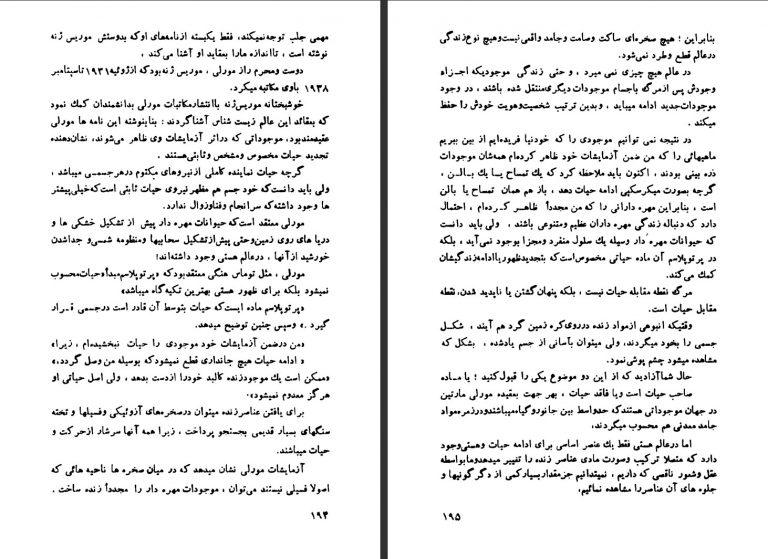 مهمی جلب توجه نمیکند، فقط یکبسته ازنامه‌های اوکه بدوستش موریس ژنه
نوشته است ، تااندازه مارا بعقاید او آشنا می‌کند ،
دوست ومحرم راز مورلی ، موریس ژنه بودکه ازژوئیه ۱۹۳۱ تاسپتامبر
۱۹۳۸ باوی مکاتبه میکرد.
خوشبختانه موریس‌ژنه باانتشارمکاتبات مورلی بدانشمندان کمك نمود
که بعقائد این عالم زیست شناس آشناگردند : بنابنوشته این نامه ها مورلی
عقیده‌مندبود، موجوداتی که دراثر آزمایشات وی ظاهر می‌شوند، نشان‌دهنده
تجدید حیات مخصوص ومشخص وثابتی‌هستند .
گرچه حیات نماینده کاملی از نیروهای مکتوم درهرجسمی میباشد ،
ولی باید دانست‌که خود جسم هم مظهر نیروی حیات ثابتی است‌که‌خیلی‌پیشتر
ها وجود داشته‌که سرانجام وفناوزوال ندارد.
مورلی معتقد است‌که حیوانات مهره دار پیش از تشکیل خشکی ها و
دریا های روی زمین‌وحتی پیش‌ازتشکیل سحابیها ومنظومه شمسی‌و جداشدن
خورشید ازآنها ، درعالم هستی وجود داشته‌اند!
مورلی ، مثل توماس هنگی معتقدبودکه «پرتوپلاسم»مبدأ‌حیات‌محسوب
نمیشود بلکه برای ظهور هستی بهترین تکیه‌گاه میباشد»
«پرتوپلاسم ماده ایست‌که حیات بتوسط آن قادر است درجسمی قرار
گیرد .» وسپس چنین توضیح میدهد.
«من درضمن آزمایشات خود موجودی را حیات نبخشیده‌ام ، زیرا»
« ادامه حیات هیچ جانداری قطع نمیشودکه بوسیله من وصل گردد.»
«ممکن است یك موجودزنده کالبد خودرا ازدست بدهد ، ولی اصل حیاتی او
هرگز معدوم نمیشود».
برای یافتن عناصرزنده میتوان درصخره‌های آزوئیکی وفسیلها و تخته
سنگهای بسیار قدیمی بجستجو پرداخت ، زیرا همه آنها سرشار ازحرکت و
حیات میباشند.
آزمایشات مورلی نشان میدهد که در میان صخره ها ناحیه هائی که
اصولا فسیلی نیستند می‌توان ، موجودات مهره دار را مجدداً زنده ساخت .
۱۹۴
بنابراین ؛ هیچ صخره‌ای ساکت وصامت وجامد واقعی نیست‌وهیچ نوع‌زندگی
درعالم قطع وطرد نمی‌شود.
در عالم هیچ چیزی نمی میرد ، و حتی زندگی موجودیکه اجزاء
وجودش پس ازمرگ باجسام موجودات دیگری‌منتقل شده باشند ، در وجود
موجودات‌جدید ادامه میبابد ، وبدین ترتیب شخصیت‌وهویت خودش را حفظ
میکند .
در نتیجه نمی توانیم موجودی را که خودنیا فریده‌ایم از بین ببریم
ماهیهائی را که من ضمن آزمایشات خود ظاهر کرده‌ام همه‌شان موجودات
ذره بینی بودند ، اکنون باید ملاحظه کرد که یك تمساح یـا یك بـالن ،
گرچه بصورت میکرسکپی ادامه حیات دهد ، باز هم همان تمساح یا بالن
است ، بنابراین مهره دارانی را که من مجدداً ظاهـر کـرده‌ام ، احتمال
دارد که دنباله زندگی مهره داران عظیم ومتنوعی باشند ، ولی باید دانست
که حیوانات مهره دار وسیله یك سلول منفرد ومجزا بوجود نمی‌آید ، بلکه
در پرتوپلاسم آن ماده حیاتی مخصوص‌است‌که بتجدیدظهوریاادامه‌زندگیشان
کمك می‌کند.
مرگ نقطه مقابله حیات نیست ، بلکه پنهان‌گشتن یا ناپدید شدن، نقطه
مقابل حیات است.
وقتیکه انبوهی ازمواد زنده درروی‌کره زمین گرد هم آیند ، شکـل
جسمی را بخود میگردند، ولی میتوان بآسانی از جسم یادشده ، بشکل که
مشاهده میشود چشم پوشی‌نمود.
حال شماآزادید که از این دو موضوع یکی را قبول‌کنید ؛ یا مـاده
صاحب حیات است ویا فاقد حیات ، بهر جهت بعقیده مورلی مارتین
در جهان موجوداتی هستندکه حدواسط بین جانوروگیاه‌میباشندودرزمره‌مواد
جامد معدنی هم محسوب میگردند،
اما درعالم هستی فقط یك عنصر اساسی برای ادامه حیات وهستی‌وجود
دارد که متصلا ترکیب وصورت مادی عناصر زنده را تغییر میدهدومابواسطه
عقل وشعور ناقصی که داریم ، نمیتدانیم جزمقداربسیارکمی از دگرگونیها و
جلوه های آن عناصررا مشاهده نمائیم.
۱۹۵